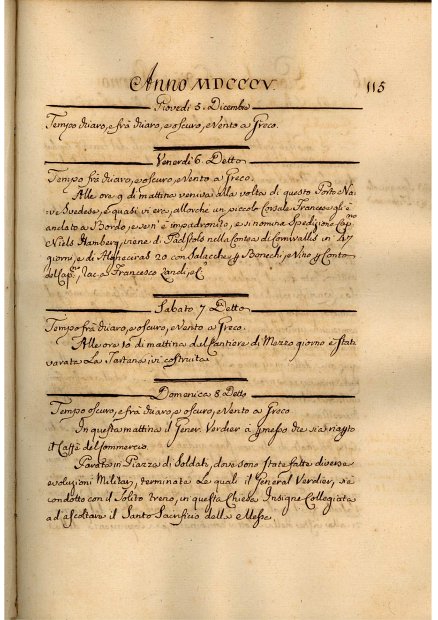 Anno MDCCCV. 115
Giovedì 5. Dicembre
Tempo chiaro, e frà chiaro, e oscuro, e Vento a Greco.
Venerdì 6. Detto
Tempo frà chiaro, e oscuro, e Vento a Greco.
Alle ore 9 di mattina veniva alla volta di questo Porto Na-
ve Svedese, e quasi vi era, allorche un piccolo Corsale Francese gli è
andato a Bordo, e se n'è impadronito, e si nomina Spedizione Cap.no
Niels Hamberg, viene di Padstolo nella Contea di Cornivallis in 47
giorni, e di Algeciras 20 con Salacche, 4 Bonechi, e Vino p Conto
del Cap.no, Rac.a Francesco Zandi, e C.
Sabato 7. Detto
Tempo frà chiaro, e oscuro, e Vento a Greco.
Alle ore 10 di mattina dal Cantiere di Mezzo giorno è stata
varata La Tartana ivi costruita.
Domenica 8. Detto
Tempo oscuro, e frà chiaro, e oscuro, e Vento a Greco
In questa mattina il Gener. Verdier à che sia riapto
il Caffè del Commercio.
Parata in Piazza di Soldati, dove sono state fatte diverse
evoluzioni Militari, terminate Le quali il General Verdier, si è
condotto con il Solito treno, in questa Chiesa Insigne Collegiata
ad ascoltare il Santo Sacrificio della Messa.